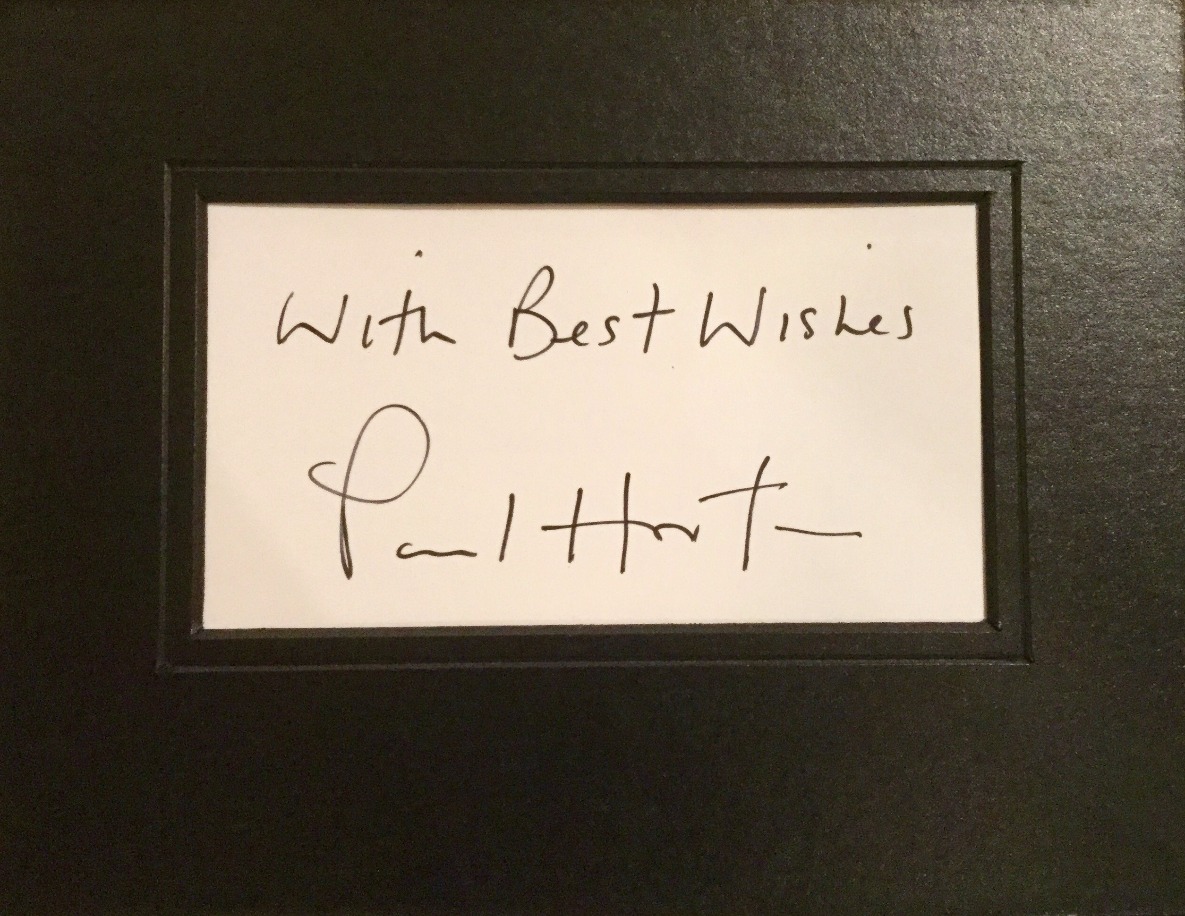 With Best Wishes
Paul Horton